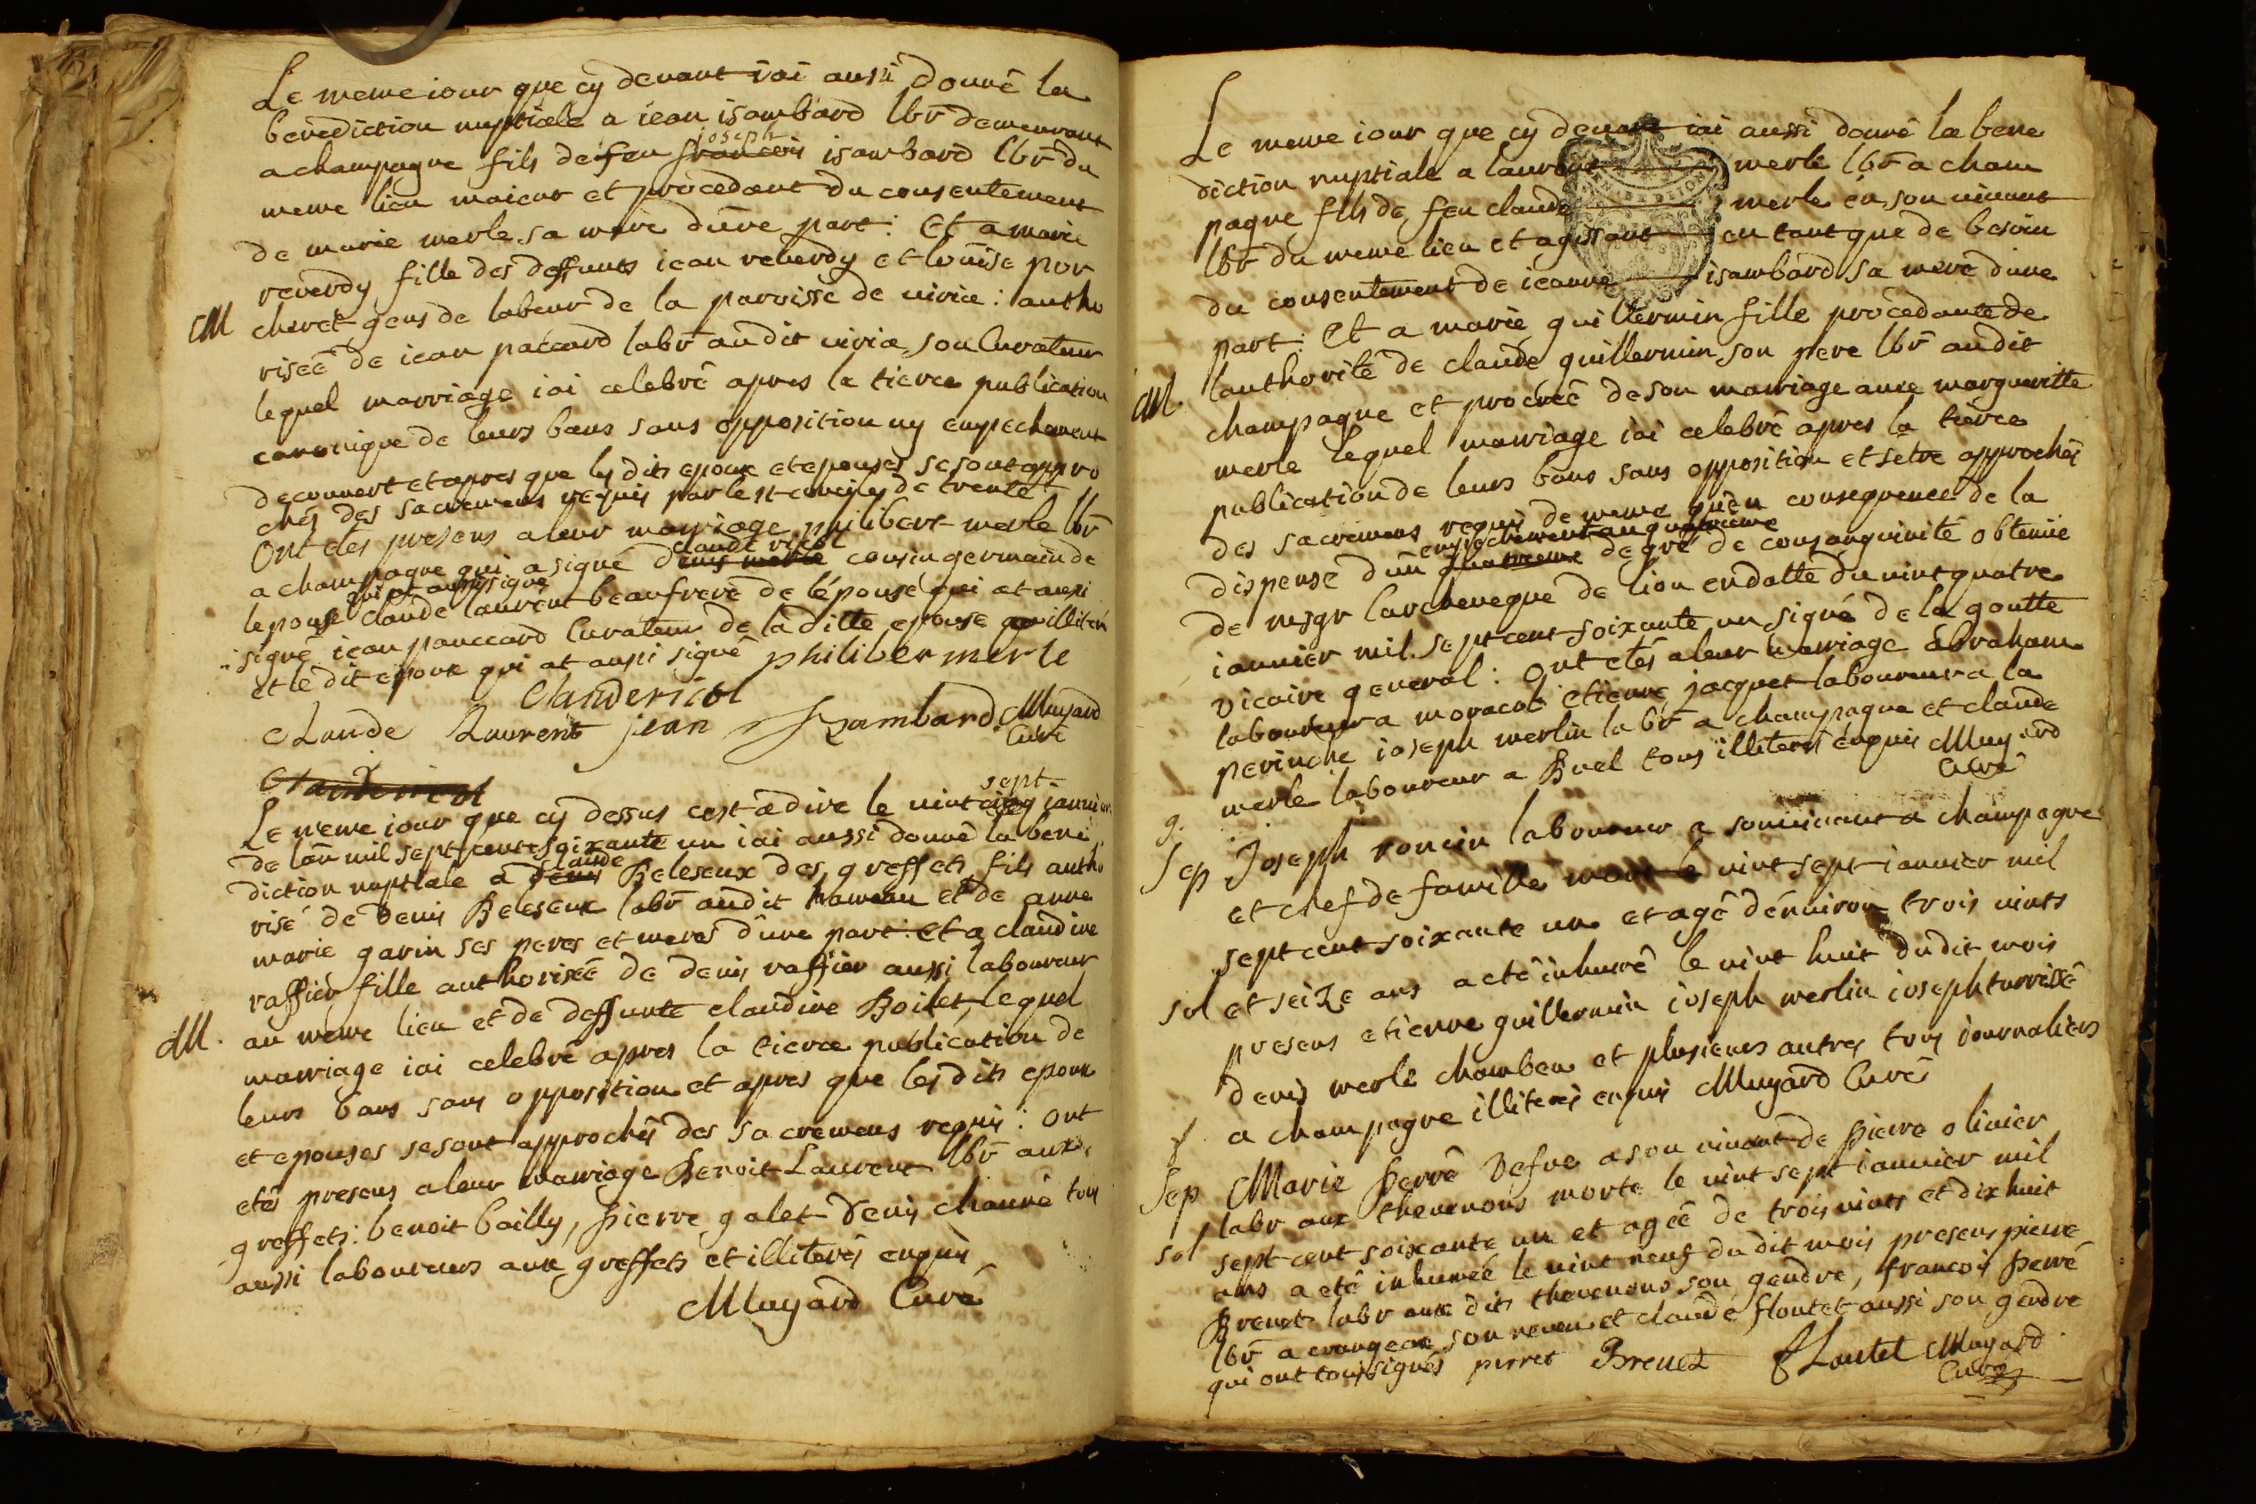 Le meme iour que cy devant iai aussi donné la
benediction nuptiale a iean isambard lbr demeurant
a champagne fils de feu francois joseph isambard lbr du
meme lieu maieur et procedant du consentement
de marie merle sa mere d'une part : Et a marie
reverdy fille des deffunts iean reverdy et loüise por
M cheret gens de labeur de la paroisse de viria : autho
risée de iean paccard labr audit viria, son Curateur
lequel marriage iai celebré apres la tierce publication
canonique de leurs bans sans opposition ny empechement
decouvert et apres que les dits epoux et epouses se sont appro
chés des sacremens requis par le st concile de trente
Ont etés presens a leur marriage philibert merle lbr
a champagne qui a signé denis merle claude ricol cousin germain de
lepouse qui at aussi signé claude laurent beaufrere de l'épouse qui at aussi
signé iean pauccard Curateur de laditte epouse illiteré
et le dit epoux qui at aussi signé philiber merle
Claudericol
Claude Laurent jean Izambard Muyard
Curé
Claudericol
Le meme iour que cy dessus cest adire le vint cinq sept janvier
de l'an mil sept cent soixante un iai aussi donné la bene
diction nuptiale a denis claude Beleseux des greffets fils autho
risé de Denis Beleseux labr audit hameau et de anne
marie garin ses peres et meres d'une part : et a claudine
raffier fille authorisée de denis raffier aussi laboureur
M. au meme lieu et de deffunte claudine Boilet, lequel
marriage iai celebré apres la tierce publication de
leurs bans sans opposition et apres que les dits epoux
et epouses se sont approchés des sacremens requis : ont
etés presens a leur marriage Benoit Laurent lbr aux
greffets : benoit bailly, pierre galet denis channé tous
aussi laboureurs aux greffets et illiterés enquis
Muyard Curé
Le meme iour que cy devant iai aussi donné la bene
diction nuptiale a laurent merle lbr a cham
pagne fils de feu claude merle en son vivant
lbr du meme lieu et agissant en tant que de besoin
du consentement de ieanne isambard sa mere d'une
part : Et a marie guillermin fille procedante de
M. lauthorité de claude guillermin son pere lbr audit
champagne et procréé de son marriage avec marguerite
merle lequel marriage iai celebré apres la tierce
publication de leurs bans sans opposition et setre approchés
des sacremens requis de meme qu'en consequence de la
dispense d'un empechement au quatrieme quatrieme degré de consanguinité obtenüe
de msgr larcheveque de lion en datte du vint quatre
iannier mil sept cent soixante un signé de la goutte
vicaire general : Ont etés a leur marriage abraham
laboureur a moracol etienne jacquet laboureur a la
perinche ioseph merlin labr a champagne et claude
merle laboureur a Buel tous illiterés enquis Muyard
Curé
g.
Sep Joseph poncin laboureur a son vivant a champagne
et chef de famille mort le vint sept iannier mil
sept cent soixante un et agé d'environ trois vints
sol et seize ans a eté inhumé le vint huit du dit mois
presens etienne guillermin ioseph merlin ioseph turrissé
denis merle chambeu et plusieurs autres tous iournaliers
a champagne illiterés enquis Muyard Curé
f
Sep Marie perré vefve a son vivant de pierre olivier
labr aux thevenons morte le vint sept iannier mil
sol sept cent soixante un et agée de trois vints et dix huit
ans a eté inhumée le vint neuf du dit mois presens pierre
Brenet labr aux dits thevenons son gendre, francois perré
lbr a crangeac son neveu et claude floutet aussi son gendre
qui ont tous signés perret Brenet C Lautet Muyard
Curé